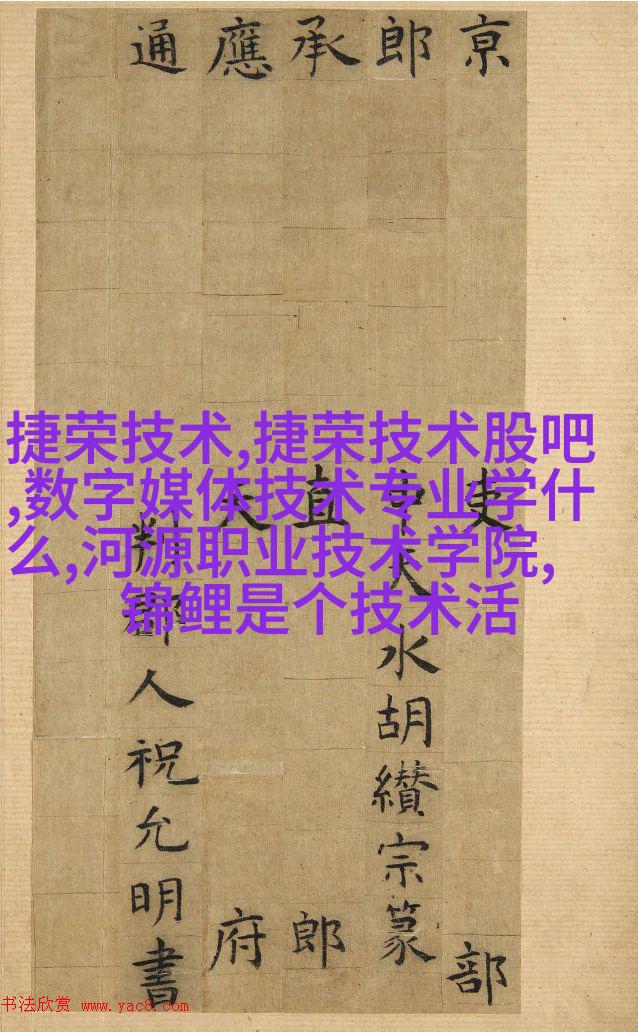 京吏部
郎中天水胡纘宗篆
承直郎
應天府
通判郡人祝允明書
捷荣技术,捷荣技术股吧
,数字媒体技术专业学什
么,河源职业技术学院,
锦鲤是个技术活
书法欣赏 www.yac8.com